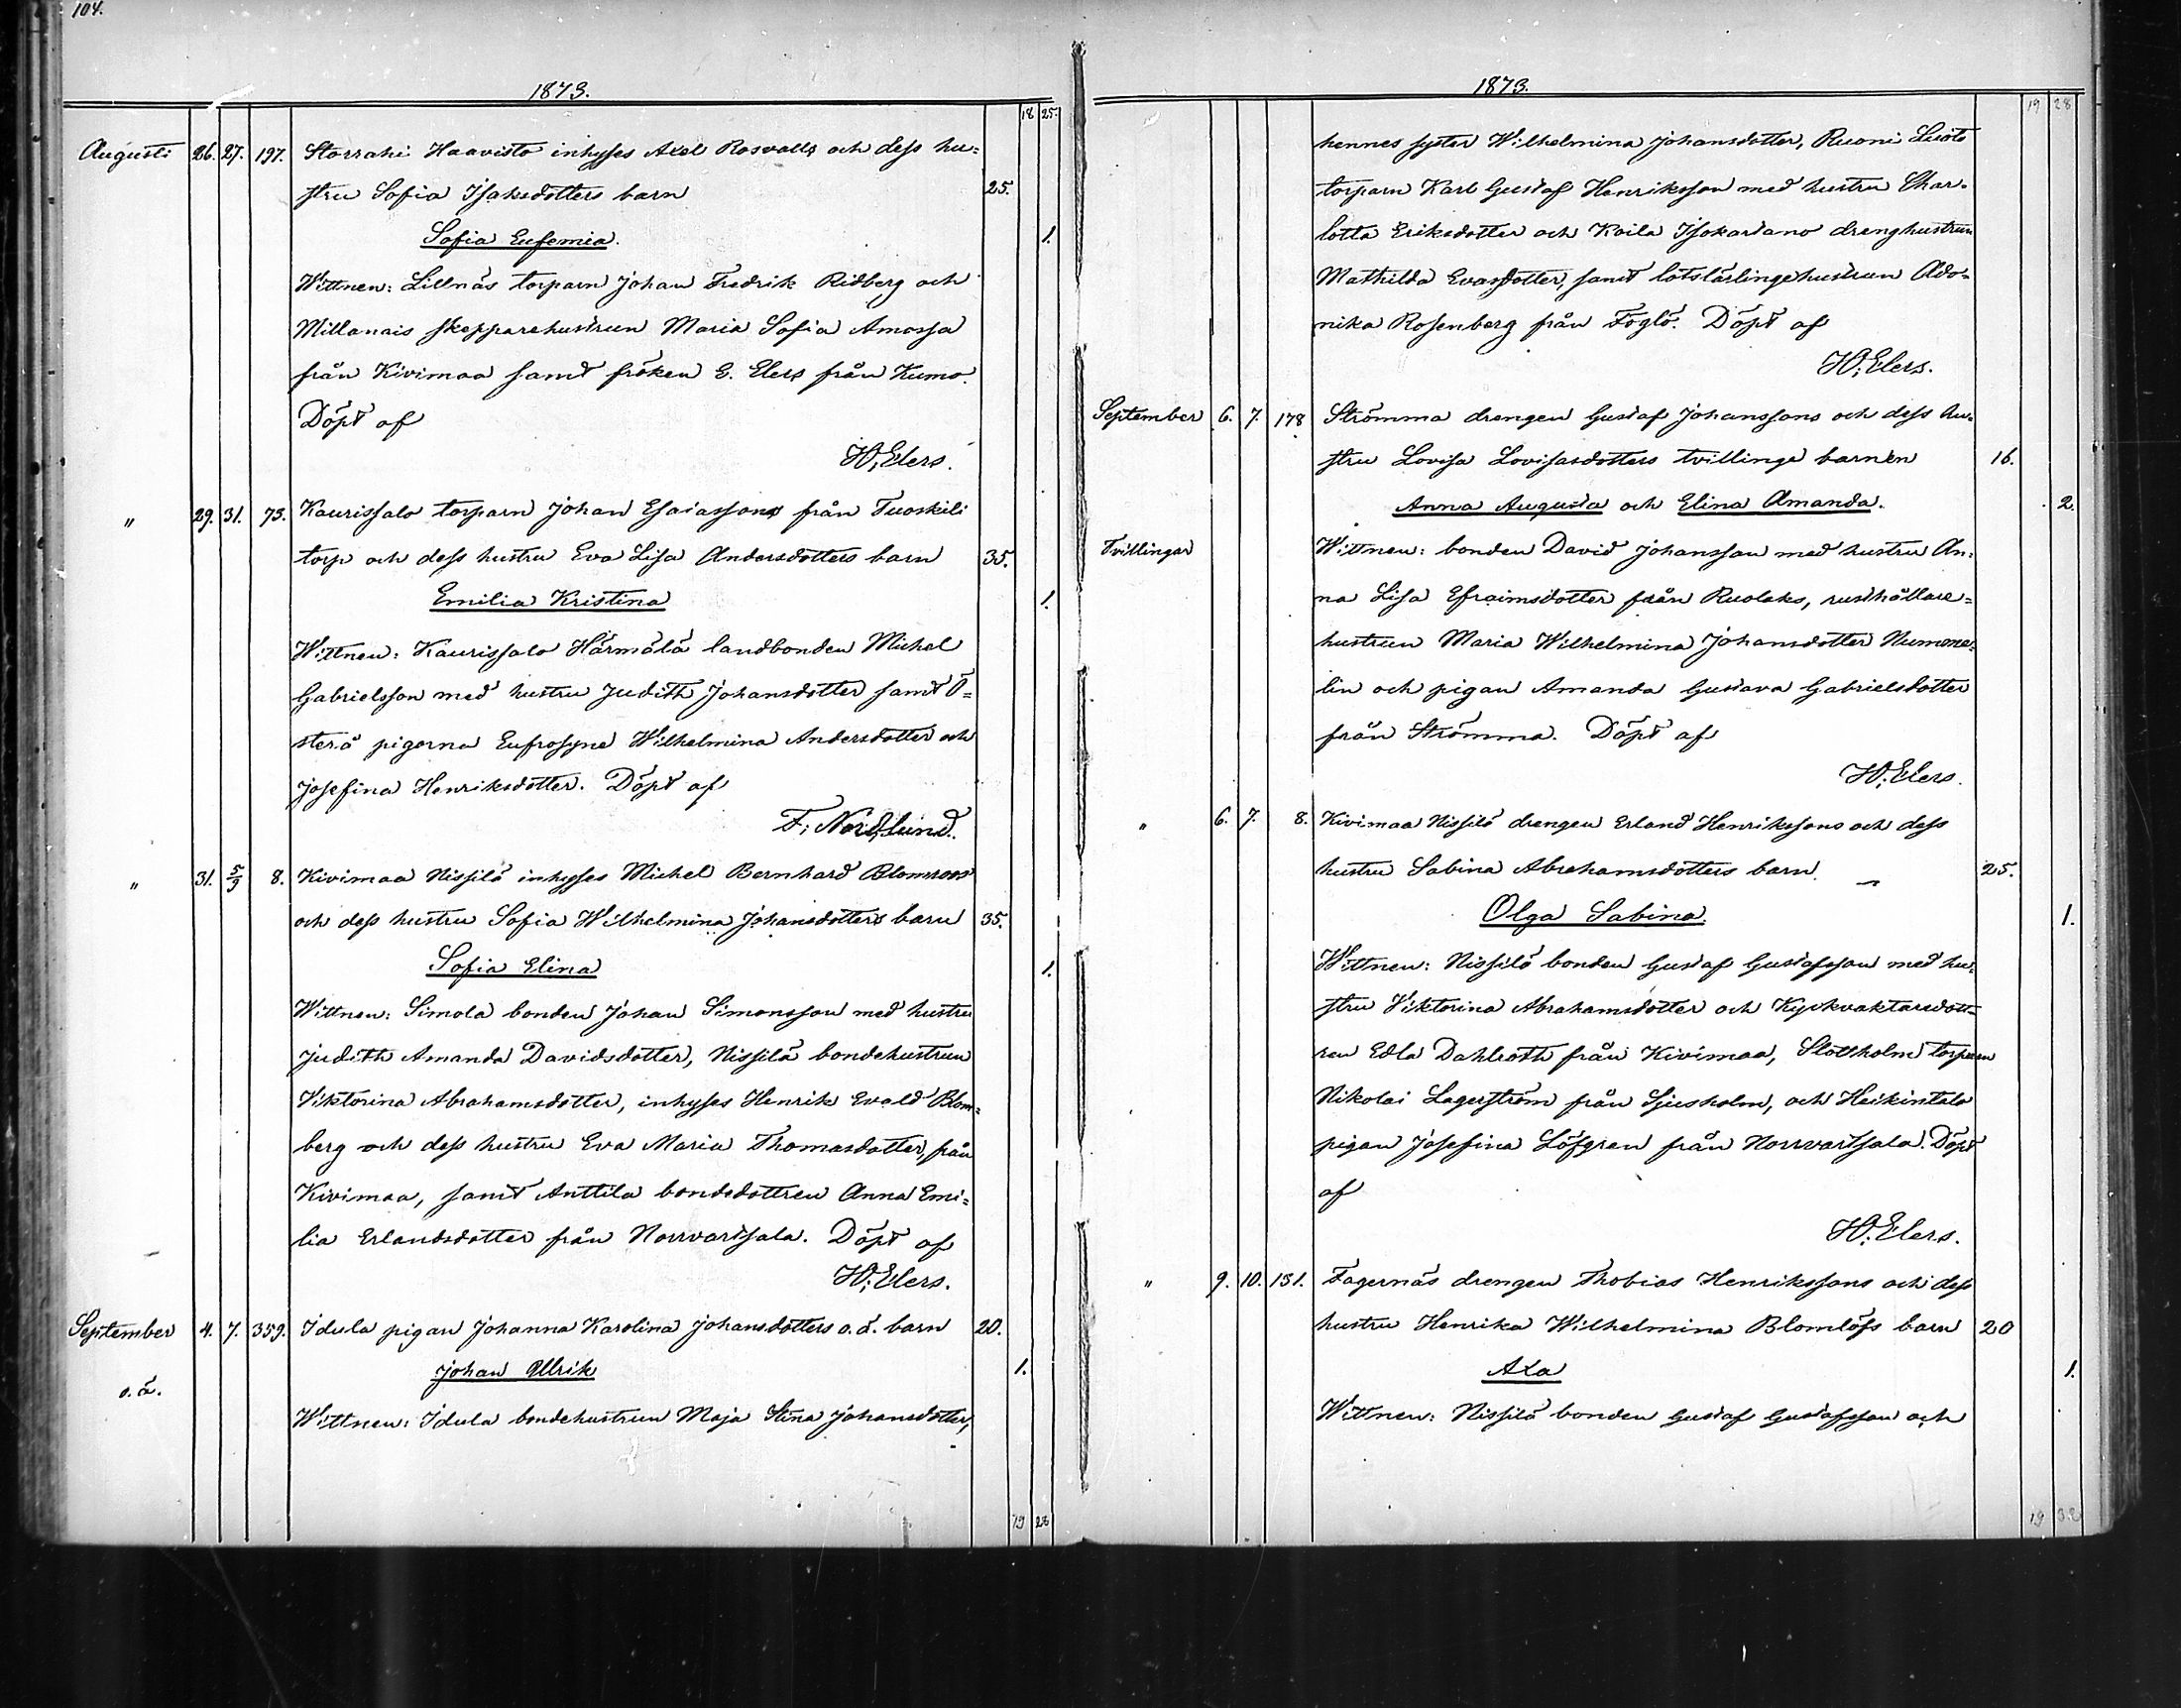 104.
1873.
18 25.
Augusti 26. 27. 197. Storrahi Haavisto inhyses Axel Rosvalls och dess hu=
stru Sofia Isaksdotters barn 25.
Sofia Eufemia. 1.
Wittnen: Lillnäs torparn Johan Fredrik Ridberg och
Millanais skepparehustrun Maria Sofia Amossa
från Kivimaa samt fröken E. Elers från Kumo.
Döpt af
H. Elers.
" 29. 31. 73. Kaurissalo torparn Johan Esaiassons från Tuoskili
torp och dess hustru Eva Lisa Andersdotters barn 35.
Emilia Kristina 1.
Wittnen: Kaurissalo Härmälä landbonden Michel
Gabrielsson med hustru Judith Johansdotter samt Ö=
sterå pigorna Eufrosyne Wilhelmina Andersdotter och
Josefina Henriksdotter. Döpt af
F. Nordlund.
" 31. 5/9 8. Kivimaa Nissilä inhyses Michel Bernhard Blomroos
och dess hustru Sofia Wilhelmina Johansdotters barn 35.
Sofia Elina 1.
Wittnen: Simola bonden Johan Simonsson med hustru
Judith Amanda Davidsdotter, Nissilä bondehustrun
Viktorina Abrahamsdotter, inhyses Henrik Evald Blom=
berg och dess hustru Eva Maria Thomasdotter, från
Kivimaa, samt Anttila bondedottren Anna Emi=
lia Erlandsdotter från Norrvartsala. Döpt af
H. Elers.
September 4. 7. 359. Idula pigan Johanna Karolina Johansdotters o.ä. barn 20.
Johan Ullrik 1.
o.ä.
Wittnen: Idula bondehustrun Maja Stina Johansdotter,
19 28
1873.
19 28
hennes syster Wilhelmina Johansdotter, Ruoni Luoto
torparn Karl Gustaf Henriksson med hustru Char=
lotta Eriksdotter och Koila Isokartano drenghustrun
Mathilda Evasdotter, samt lotslärlingehustrun Ado=
nika Rosenberg från Föglö. Döpt af
H. Elers.
September 6. 7. 178 Strömma drengen Gustaf Johanssons och dess hu=
stru Lovisa Lovisasdotters tvillinge barnen 16.
Anna Augusta och Elina Amanda. 2.
Tvillingar Wittnen: bonden David Johansson med hustru An=
na Lisa Efraimsdotter från Ruolaks, rusthållare=
hustrun Maria Wilhelmina Johansdotter Numme=
lin och pigan Amanda Gustava Gabrielsdotter
från Strömma. Döpt af
H. Elers.
" 6. 7. 8. Kivimaa Nissilä drengen Erland Henrikssons och dess
hustru Sabina Abrahamsdotters barn 25.
Olga Sabina. 1.
Wittnen: Nissilä bonden Gustaf Gustafsson med hu=
stru Viktorina Abrahamsdotter och Kyrkvaktaredott=
ren Edla Dahlroth från Kivimaa, Slottholm torparn
Nikolai Lagerström från Sjusholm, och Heikintalo
pigan Josefina Löfgren från Norrvartsala. Döpt
af
H. Elers.
" 9. 10. 131. Fagernäs drengen Thobias Henrikssons och dess
hustru Henrika Wilhelmina Blomlöfs barn 20
Axa 1.
Wittnen: Nissilä bonden Gustaf Gustafsson och
19 32